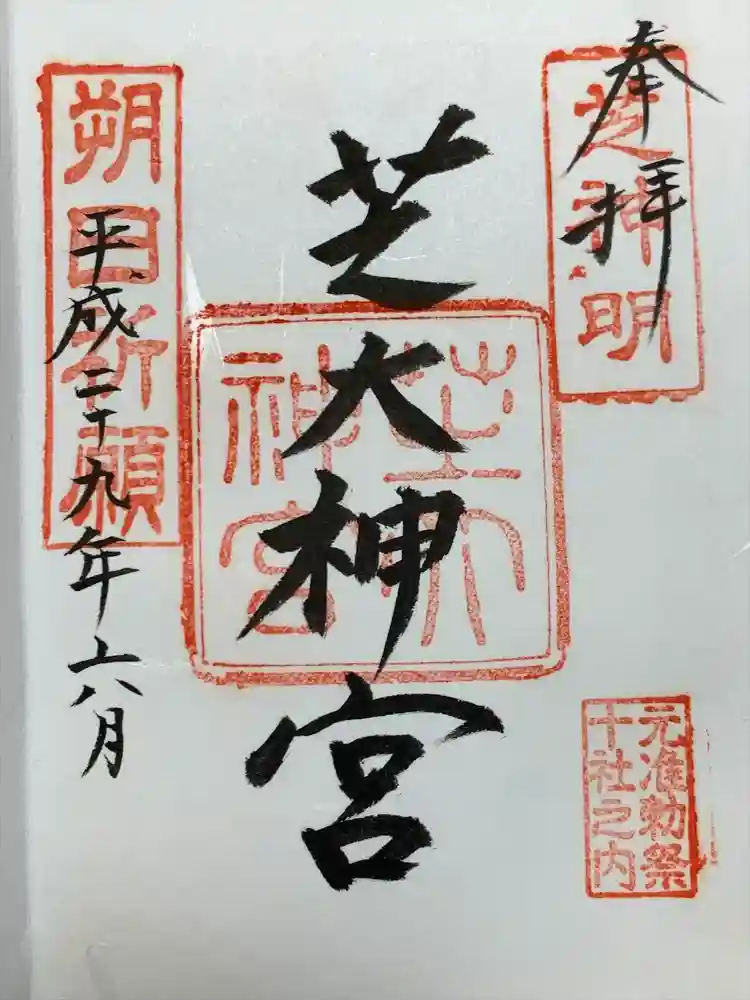 奉拝
芝神明
芝大神宮
芝大神宮
元准勅祭
十社之内
朔日祈願
平成二十九年六月